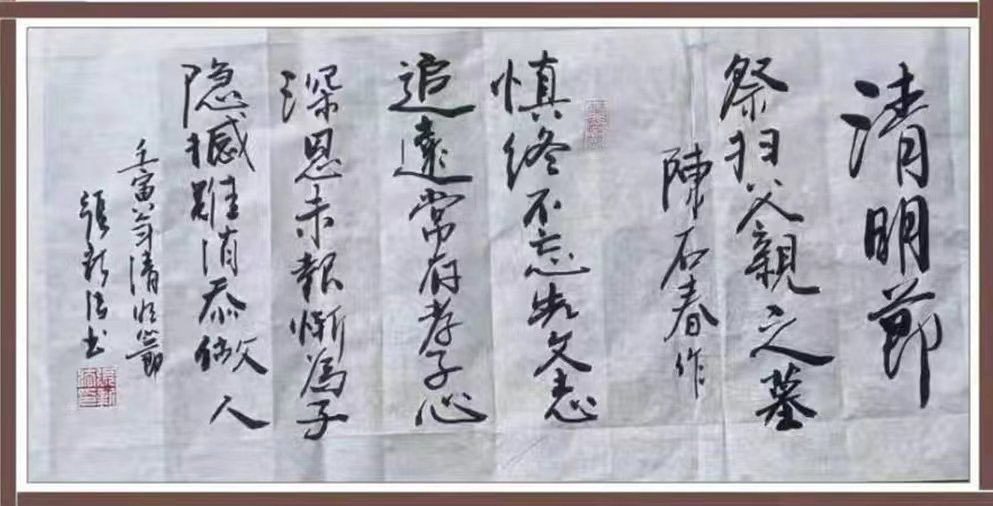 清明節
祭扫父親之墓
陳石春作
慎终不忘先父志
追遠常存孝子心
深恩未報慚為子
隐憾難消忝做人
壬寅年清明節
張新法书